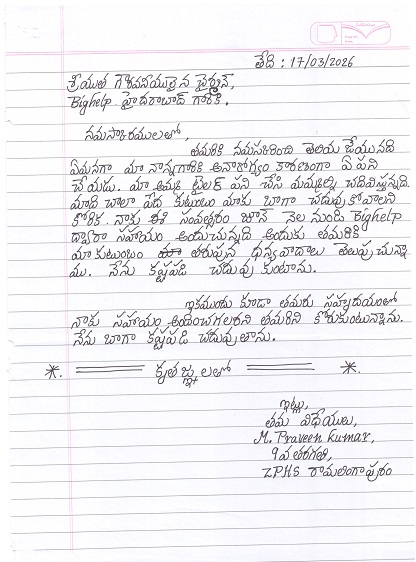 తేది : 17/03/2026
శ్రీయుత గౌరవనీయులైన చైర్మన్,
Bighelp హైదరాబాద్ గారికి.
నమస్కారములలో,
తమరికి నమస్కరించి తెలియ జేయునది
ఏమనగా మా నాన్నగారికి అనారోగ్యం కారణంగా ఏ పని
చేయడు. మా అమ్మ టైలర్ పని చేసి మమ్మల్ని చదివిస్తున్నది.
మాది చాలా పేద కుటుంబం మాకు బాగా చదువుకోవాలని
కోరిక. నాకు ఈ సంవత్సరం జూన్ నెల నుండి Bighelp
ద్వారా సహాయం అందుచున్నది అందుకు తమరికి
మా కుటుంబం తరుపున ధన్యవాదాలు తెలుపుచున్నా
ము. నేను కష్టపడి చదువు కుంటాను.
ఇకముందు కూడా తమరు సహృదయంలో
నాకు సహాయం అందించగలరని తమరిని కోరుకుంటున్నాను.
నేను బాగా కష్టపడి చదువుతాను.
*. కృతజ్ఞలలో *.
ఇట్లు,
తమ విధేయులు,
M. Praveen kumar,
9వ తరగతి,
ZPHS రామలింగాపురం